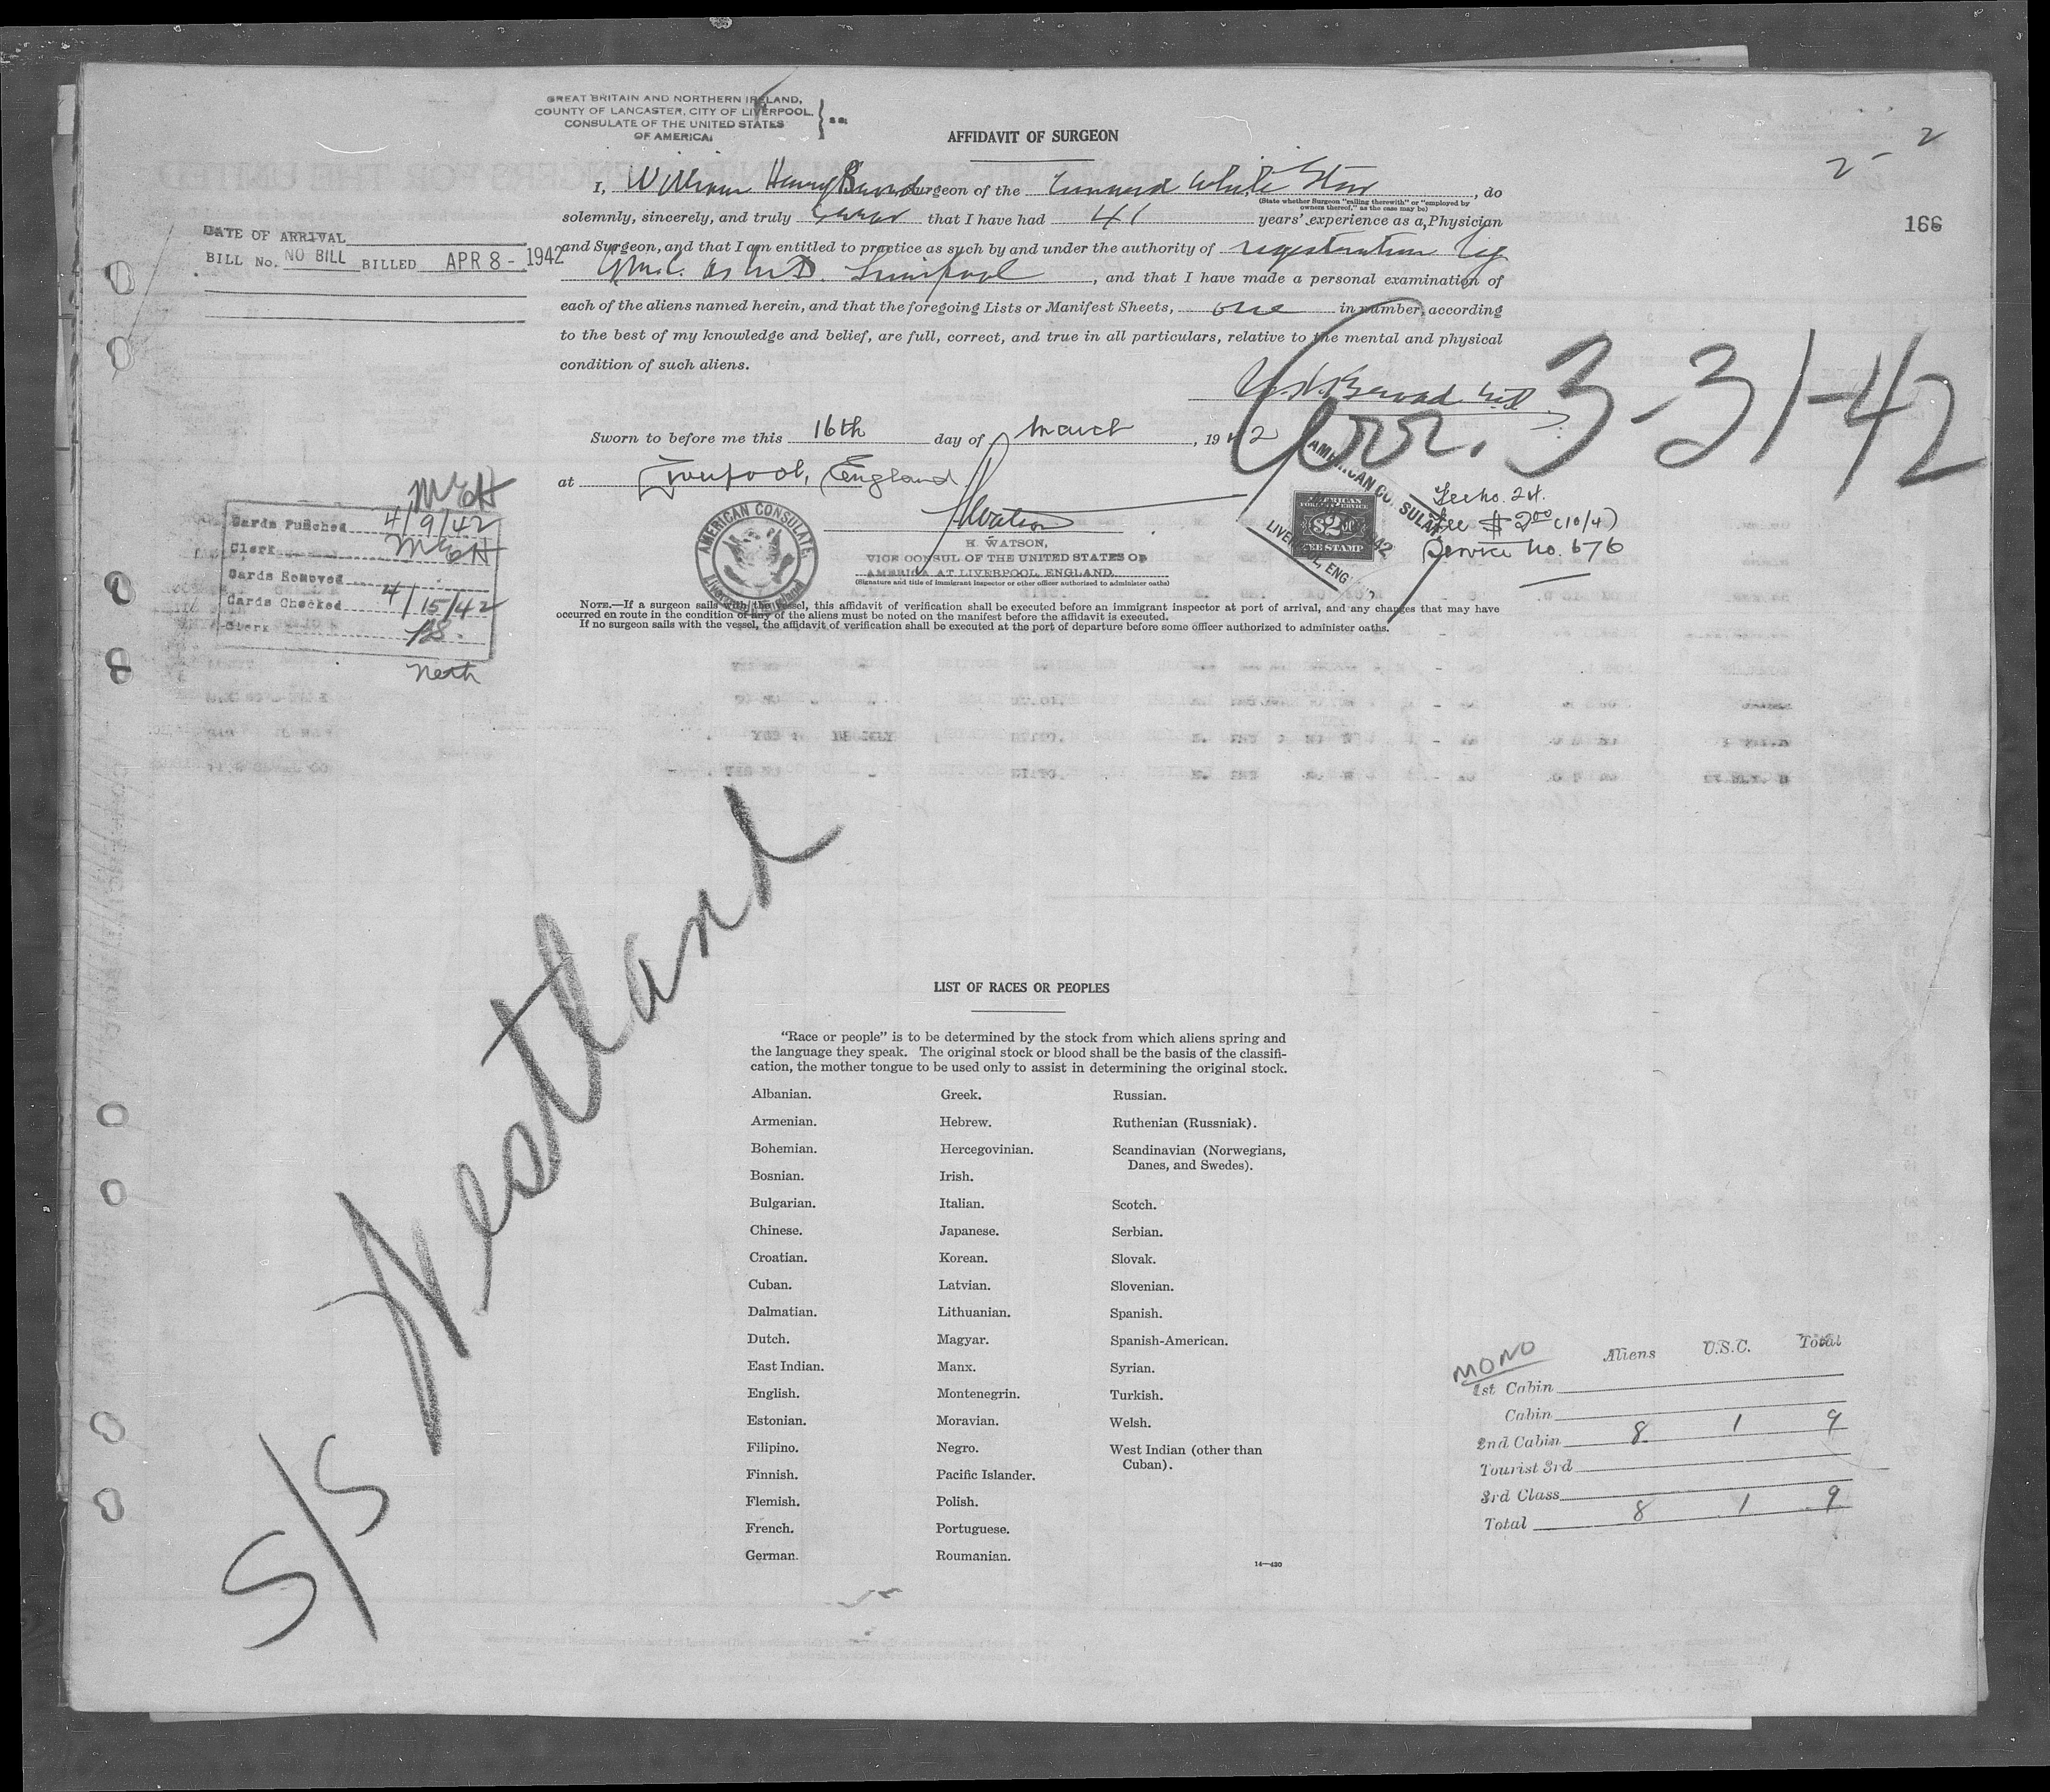 GREAT BRITAIN AND NORTHERN IRELAND,
COUNTY OF LANCASTER, CITY OF LIVERPOOL.
CONSULATE OF THE UNITED STATES
OF AMERICA
} ss
AFFIDAVIT OF SURGEON
2 - 2
166
I, William Henry surgeon of the Cunard White Star, do
(State whether Surgeon "sailing therewith" or "employed by owners thereof," as the case may be)
solemnly, sincerely, and truly swear that I have had 41 years' experience as a Physician
and Surgeon, and that I am entitled to practice as such by and under the authority of registration by
G.M.C. as M.D. Liverpool, and that I have made a personal examination of
each of the aliens named herein, and that the foregoing Lists or Manifest Sheets, one in number, according
to the best of my knowledge and belief, are full, correct, and true in all particulars, relative to the mental and physical
condition of such aliens.
DATE OF ARRIVAL
BILL No. NO BILL BILLED APR 8 - 1942
3-31-42
Sworn to before me this 16th day of March, 1942
at Liverpool, England
H Watson
H. WATSON,
VICE CONSUL OF THE UNITED STATES OF
AMERICA AT LIVERPOOL, ENGLAND.
(Signature and title of immigrant inspector or other officer authorized to administer oaths)
AMERICAN CONSULATE,
Liverpool, England
AMERICAN CONSULAR
LIVERPOOL, ENG
AMERICAN
FOREIGN SERVICE
$2.00
FEE STAMP
Fee $2.00 (10/4)
Service No. 676
MEH
Cards Punched 4/9/42
Clerk MEH
Cards Removed
Cards Checked 4/15/42
Clerk
NOTE.—If a surgeon sails with the vessel, this affidavit of verification shall be executed before an immigrant inspector at port of arrival, and any changes that may have
occurred en route in the condition of any of the aliens must be noted on the manifest before the affidavit is executed.
If no surgeon sails with the vessel, the affidavit of verification shall be executed at the port of departure before some officer authorized to administer oaths.
S/S Westland
LIST OF RACES OR PEOPLES
"Race or people" is to be determined by the stock from which aliens spring and
the language they speak. The original stock or blood shall be the basis of the classifi-
cation, the mother tongue to be used only to assist in determining the original stock.
Albanian.
Armenian.
Bohemian.
Bosnian.
Bulgarian.
Chinese.
Croatian.
Cuban.
Dalmatian.
Dutch.
East Indian.
English.
Estonian.
Filipino.
Finnish.
Flemish.
French.
German.
Greek.
Hebrew.
Hercegovinian.
Irish.
Italian.
Japanese.
Korean.
Latvian.
Lithuanian.
Magyar.
Manx.
Montenegrin.
Moravian.
Negro.
Pacific Islander.
Polish.
Portuguese.
Roumanian.
Russian.
Ruthenian (Russniak).
Scandinavian (Norwegians,
Danes, and Swedes).
Scotch.
Serbian.
Slovak.
Slovenian.
Spanish.
Spanish-American.
Syrian.
Turkish.
Welsh.
West Indian (other than
Cuban).
14—430
MONO
Aliens U.S.C. Total
1st Cabin
Cabin
2nd Cabin 8 1 9
Tourist 3rd
3rd Class
Total 8 1 9